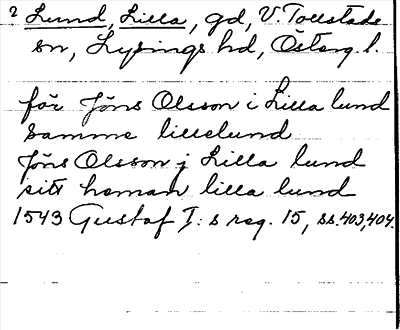 2 Lund, Lilla, gd, V. Tollstads
sn, Lysings hd, Österg. l.
för Jöns Olsson i Lilla lund
samme lillelund
Jöns Olsson j Lilla lund
sitt heman lilla lund
1543 Gustaf I:s reg. 15, ss. 403, 404.